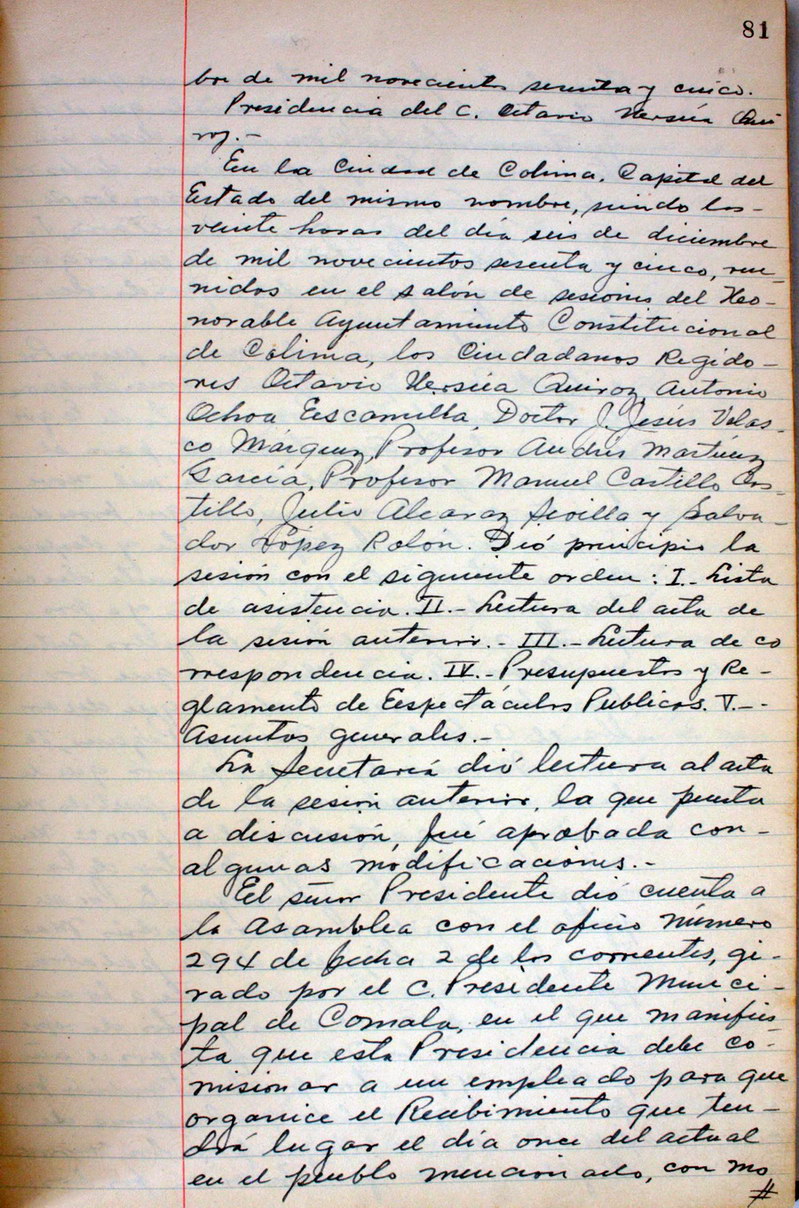 81
bre de mil novecientos sesenta y cinco.
Presidencia del C. Octavio Versúa Qui
roz.-
En la Ciudad de Colima, Capital del
Estado del mismo nombre, siendo las-
veinte horas del día seis de diciembre
de mil novecientos sesenta y cinco, reu-
nidos en el salón de sesiones del Ho-
norable Ayuntamiento Constitucional
de Colima, los Ciudadanos Regido-
res Octavio Versúa Quiroz, Antonio
Ochoa Escamilla, Doctor J. Jesús Velas-
co Márquez, Profesor Andrés Martínez
García, Profesor Manuel Castillo Cas-
tillo, Julio Alcaraz Sevilla y Salva-
dor López Rolón. Dió principio la
sesión con el siguiente orden: I.- Lista
de asistencia. II.- Lectura del acta de
la sesión anterior.- III.- Lectura de co
rrespondencia. IV.- Presupuestos y Re-
glamento de Espectáculos Publicos. V.-
Asuntos generales.-
La Secretaría dió lectura al acta
de la sesión anterior, la que puesta
a discusión, fué aprobada con-
algunas modificaciones.-
El señor Presidente dió cuenta a
la Asamblea con el oficio número
294 de fecha 2 de los corrientes, gi-
rado por el C. Presidente Munici-
pal de Comala, en el que manifies
ta que esta Presidencia debe co-
misionar a un empleado para que
organice el Recibimiento que ten-
drá lugar el día once del actual
en el pueblo mencionado, con mo
#